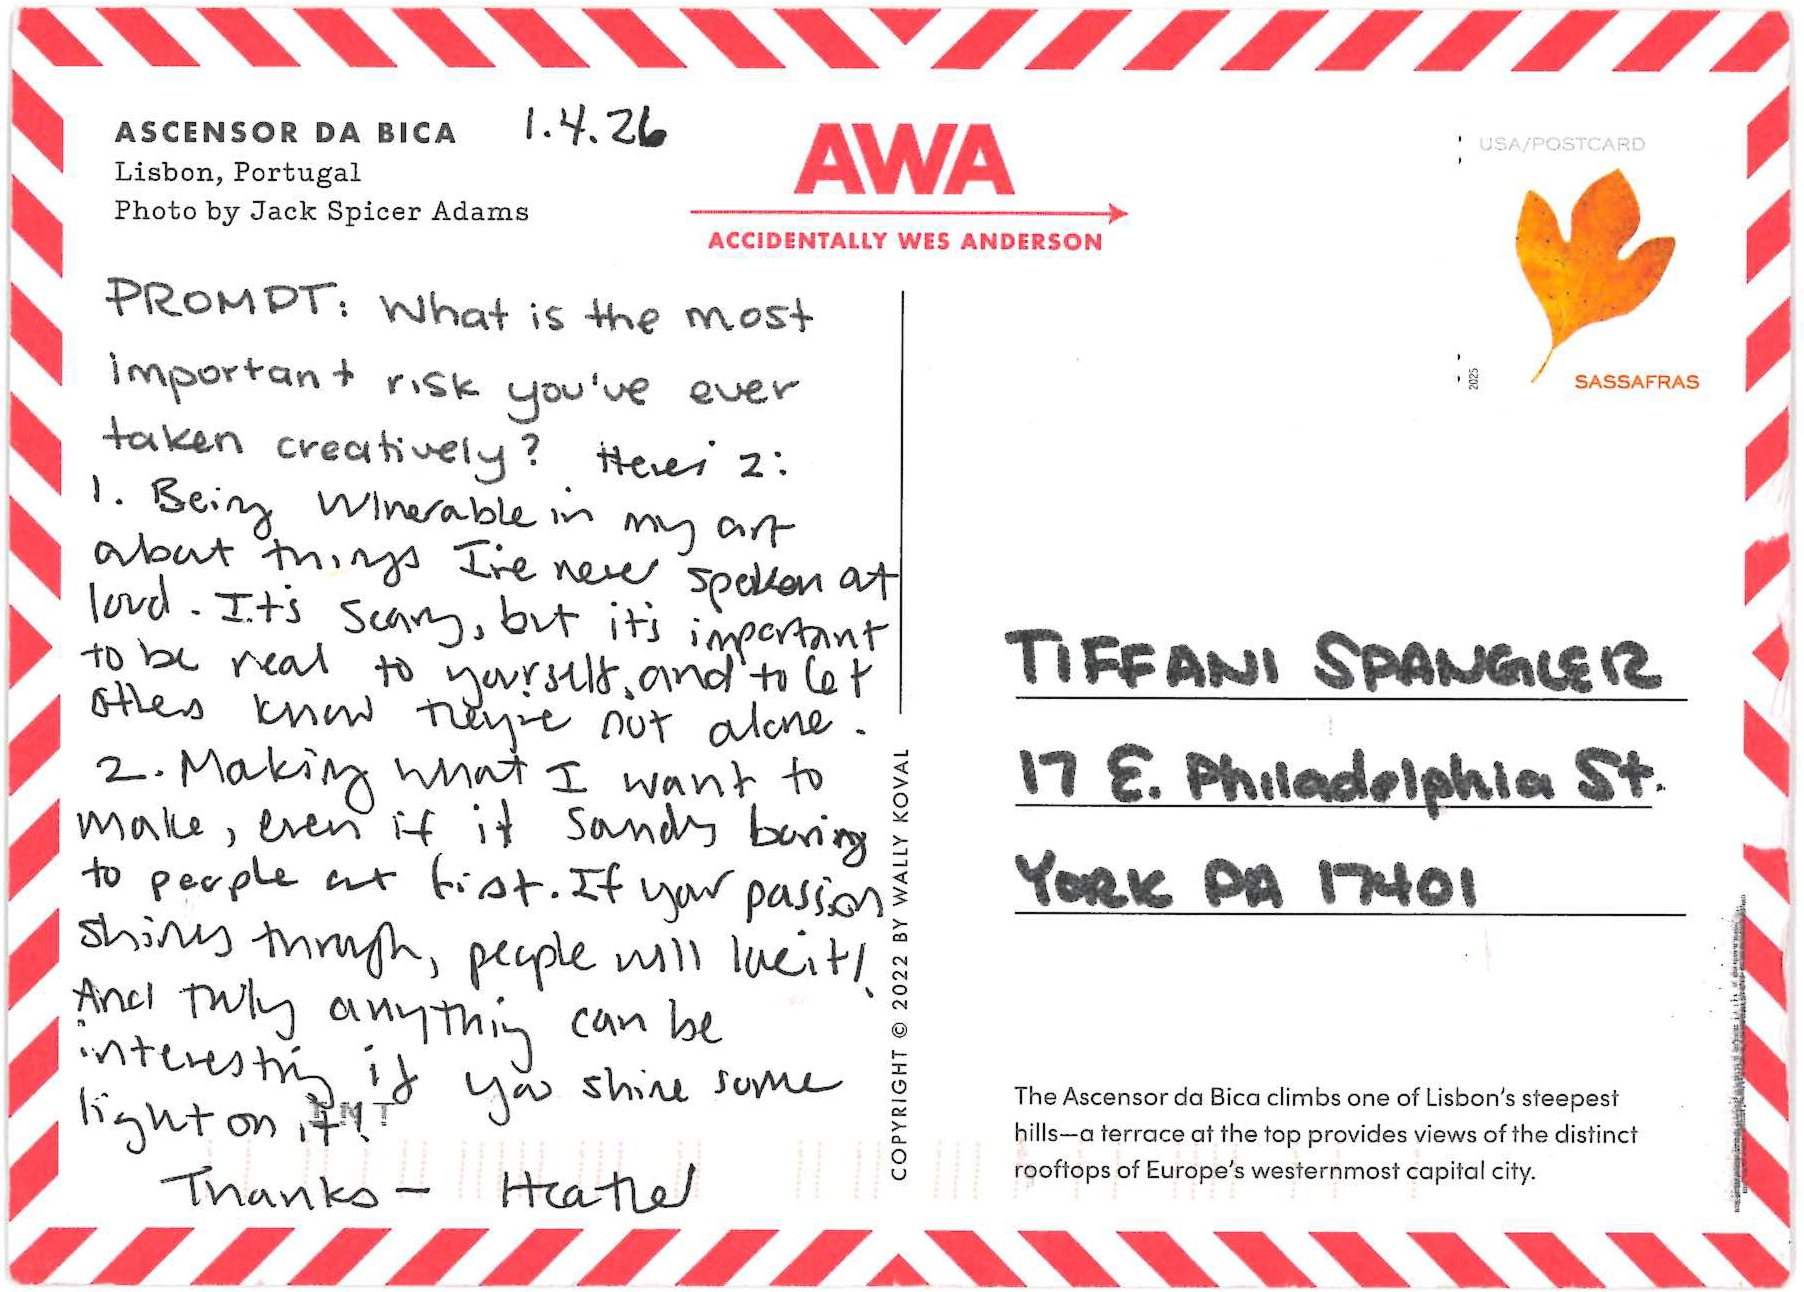 ASCENSOR DA BICA 1.4.26
Lisbon, Portugal
Photo by Jack Spicer Adams
AWA
ACCIDENTALLY WES ANDERSON
USA/POSTCARD
2025
SASSAFRAS
PROMPT: What is the most
important risk you've ever
taken creatively? Here's 2:
1. Being vulnerable in my art
about things I've never spoken out
loud. It's scary, but it's important
to be real to yourself, and to let
others know they're not alone.
2. Making what I want to
make, even if it sounds boring
to people at first. If your passion
shines through, people will love it!
And truly anything can be
interesting if you shine some
light on it!
Thanks - Heather
COPYRIGHT © 2022 BY WALLY KOVAL
TIFFANI SPANGLER
17 E. Philadelphia St.
YORK PA 17401
The Ascensor da Bica climbs one of Lisbon's steepest
hills—a terrace at the top provides views of the distinct
rooftops of Europe's westernmost capital city.